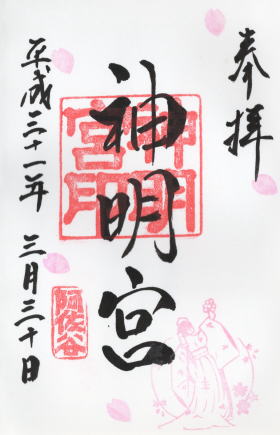 奉拝
神明宮
神明宮
平成三十一年 三月三十日
阿佐谷